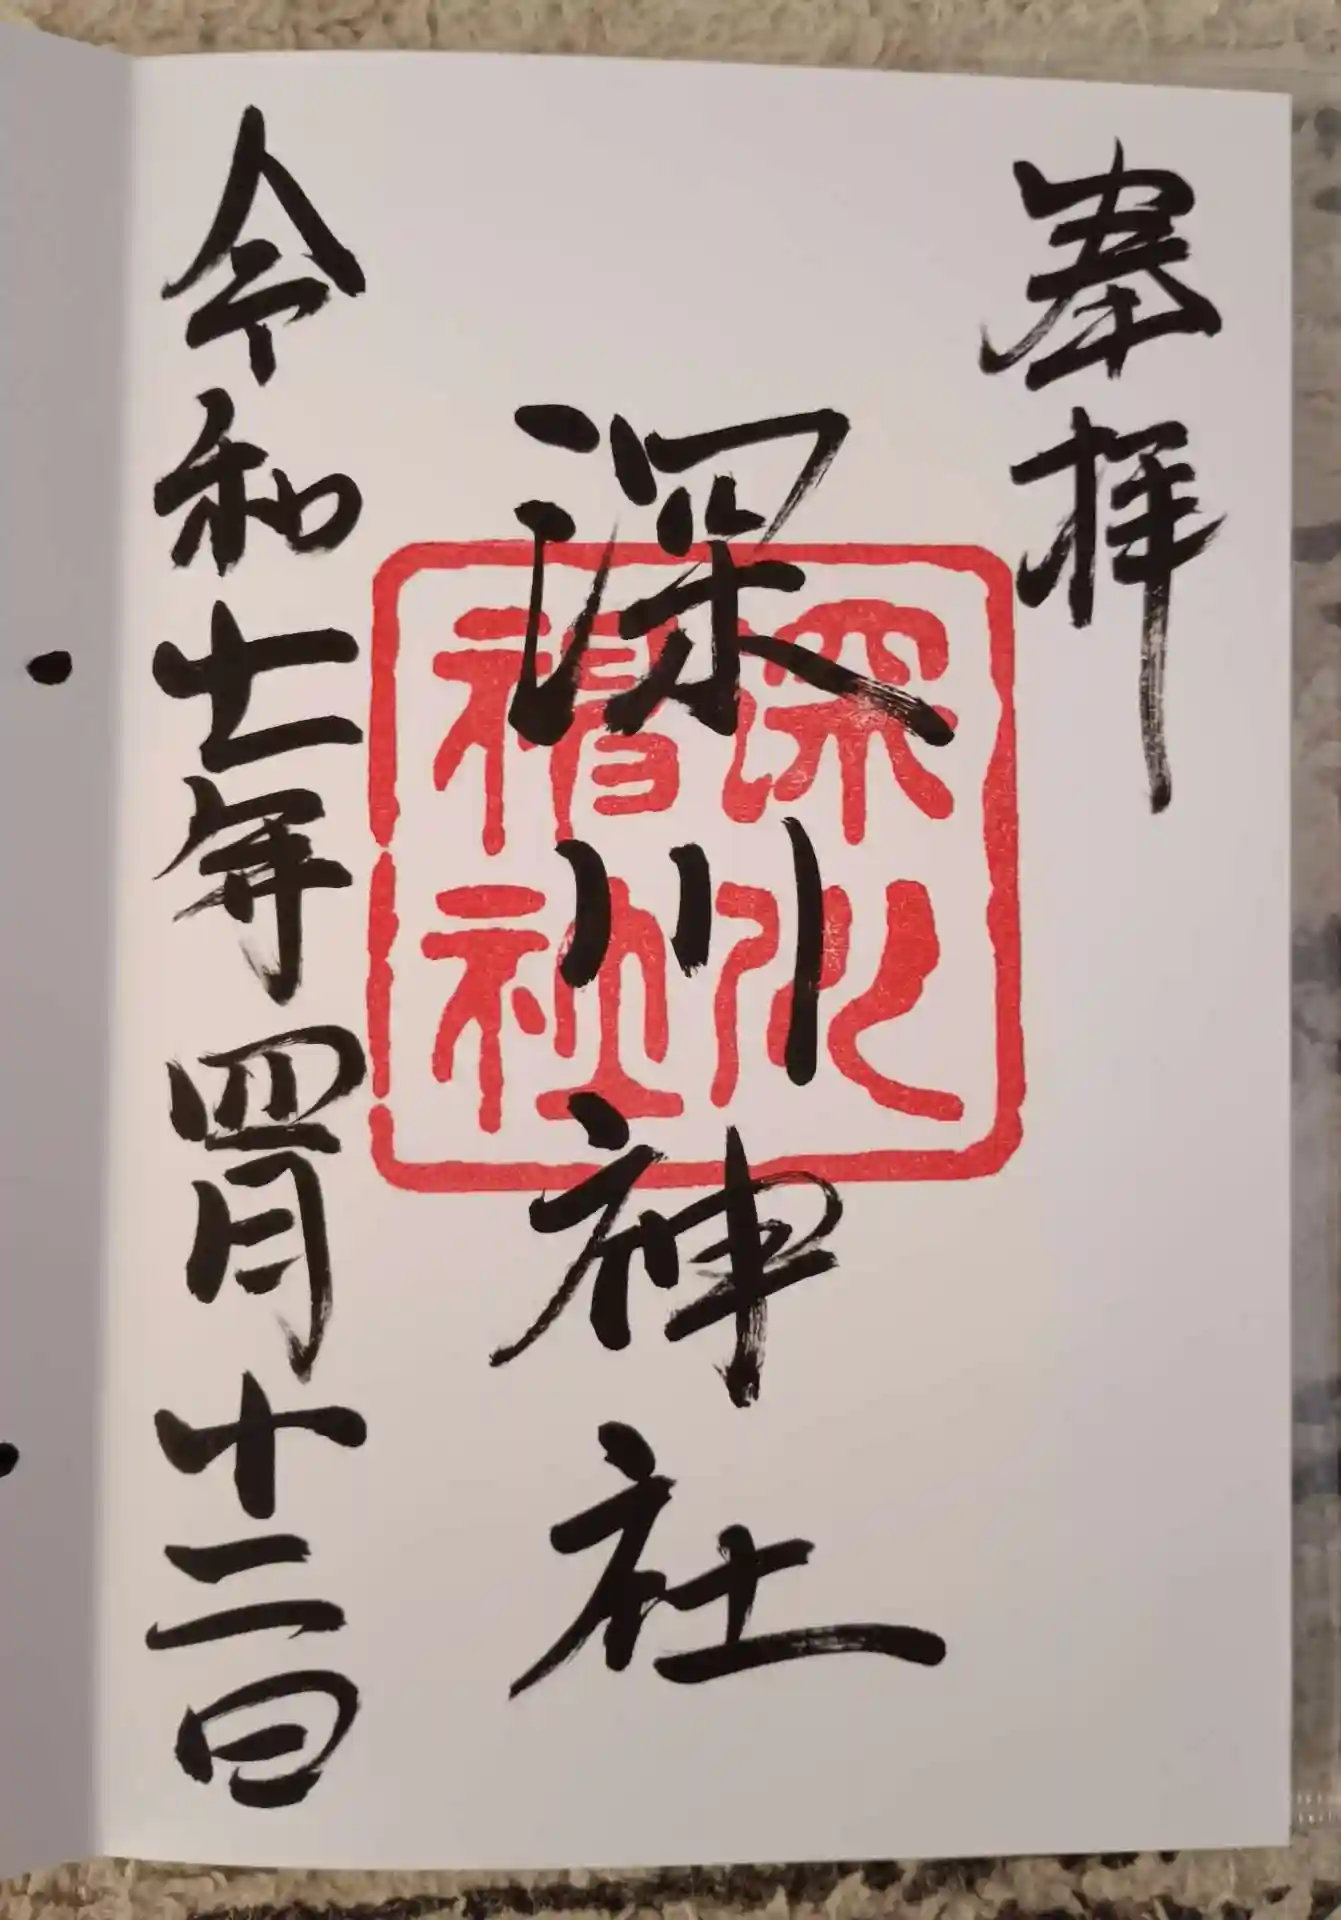 奉拝
深川神社
深川神社
令和七年四月十二日